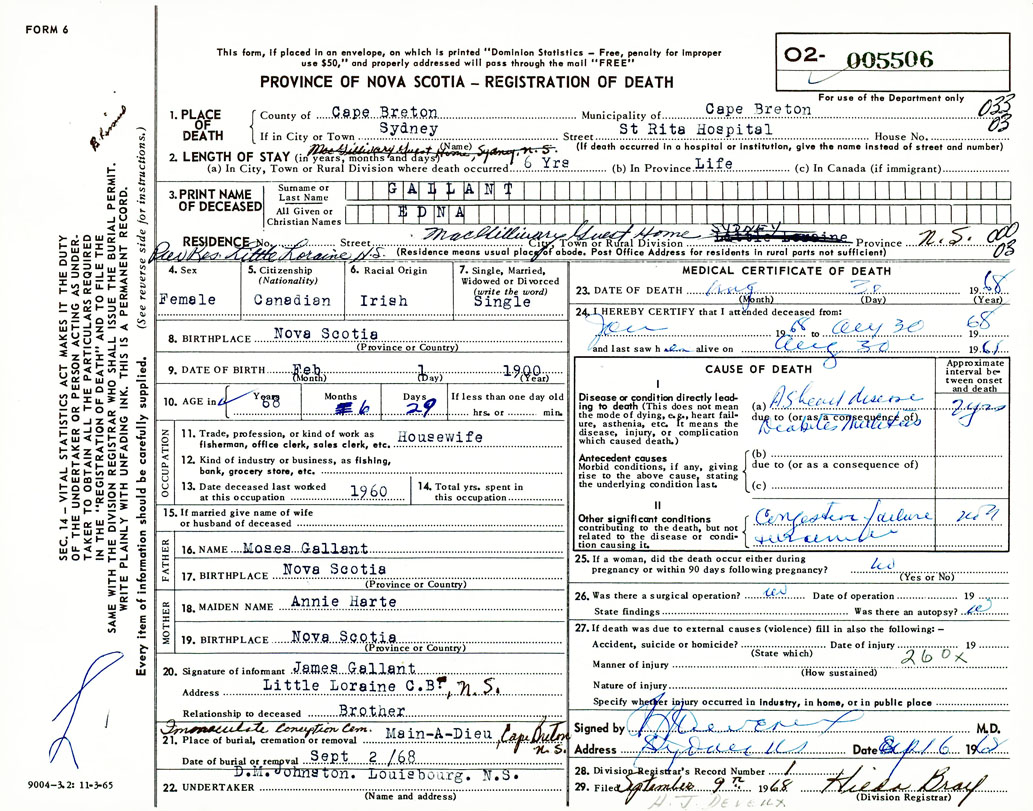 FORM 6
This form, if placed in an envelope, on which is printed "Dominion Statistics – Free, penalty for improper
use $50," and properly addressed will pass through the mail "FREE"
O2- 005506
PROVINCE OF NOVA SCOTIA – REGISTRATION OF DEATH
For use of the Department only
1. PLACE OF DEATH
County of Cape Breton Municipality of Cape Breton 033
03
If in City or Town Sydney Street St Rita Hospital House No.
(Name) (If death occurred in a hospital or institution, give the name instead of street and number)
2. LENGTH OF STAY (in years, months and days)
(a) In City, Town or Rural Division where death occurred 6 Yrs (b) In Province Life (c) In Canada (if immigrant)
3. PRINT NAME OF DECEASED
Surname or Last Name GALLANT
All Given or Christian Names EDNA
RESIDENCE No. Street MacGillivary Guest Home City, Town or Rural Division SYDNEY Little Loraine Province N.S. 000
03
Prev Res. Little Loraine N.S. (Residence means usual place of abode. Post Office Address for residents in rural parts not sufficient)
4. Sex Female
5. Citizenship (Nationality) Canadian
6. Racial Origin Irish
7. Single, Married, Widowed or Divorced (write the word) Single
8. BIRTHPLACE Nova Scotia
(Province or Country)
9. DATE OF BIRTH Feb 1 1900
(Month) (Day) (Year)
10. AGE in Years 68 Months 6 Days 29 If less than one day old
hrs. or min.
OCCUPATION
11. Trade, profession, or kind of work as fisherman, office clerk, sales clerk, etc. Housewife
12. Kind of industry or business, as fishing, bank, grocery store, etc.
13. Date deceased last worked at this occupation 1960
14. Total yrs. spent in this occupation
15. If married give name of wife or husband of deceased
FATHER
16. NAME Moses Gallant
17. BIRTHPLACE Nova Scotia
(Province or Country)
MOTHER
18. MAIDEN NAME Annie Harte
19. BIRTHPLACE Nova Scotia
(Province or Country)
20. Signature of informant James Gallant
Address Little Loraine C.B., N.S.
Relationship to deceased Brother
Immaculate Conception Cem.
21. Place of burial, cremation or removal Main-A-Dieu, Cape Breton
N.S.
Date of burial or removal Sept 2 /68
D.M. Johnston. Louisbourg. N.S.
22. UNDERTAKER
(Name and address)
MEDICAL CERTIFICATE OF DEATH
23. DATE OF DEATH Aug 30 1968
(Month) (Day) (Year)
24. I HEREBY CERTIFY that I attended deceased from:
Jan 1968 to Aug 30 68
and last saw h alive on Aug 30 1968
CAUSE OF DEATH
Approximate interval between onset and death
I
Disease or condition directly leading to death (This does not mean the mode of dying, e.g., heart failure, asthenia, etc. It means the disease, injury, or complication which caused death.)
(a) AS heart disease 2 yrs
due to (or as a consequence of)
Diabetes Mellitus
Antecedent causes
Morbid conditions, if any, giving rise to the above cause, stating the underlying condition last.
(b)
due to (or as a consequence of)
(c)
II
Other significant conditions contributing to the death, but not related to the disease or condition causing it.
Congestive failure
25. If a woman, did the death occur either during pregnancy or within 90 days following pregnancy? no
(Yes or No)
26. Was there a surgical operation? no Date of operation 19
State findings Was there an autopsy? no
27. If death was due to external causes (violence) fill in also the following: –
Accident, suicide or homicide? Date of injury 19
(State which) 260X
Manner of injury
(How sustained)
Nature of injury
Specify whether injury occurred in Industry, in home, or in public place
Signed by M.D.
Address Sydney NS Date Sep 16 1968
28. Division Registrar's Record Number 1
29. Filed September 9th 1968 Hilda Bray
(Division Registrar)
H. J. DEVEREUX
SEC. 14 – VITAL STATISTICS ACT MAKES IT THE DUTY
OF THE UNDERTAKER OR PERSON ACTING AS UNDER-
TAKER TO OBTAIN ALL THE PARTICULARS REQUIRED
IN THE "REGISTRATION OF DEATH" AND TO FILE THE
SAME WITH THE DIVISION REGISTRAR WHO SHALL ISSUE THE BURIAL PERMIT.
WRITE PLAINLY WITH UNFADING INK. THIS IS A PERMANENT RECORD.
Every item of information should be carefully supplied. (See reverse side for instructions.)
9004-3.2: 11-3-65